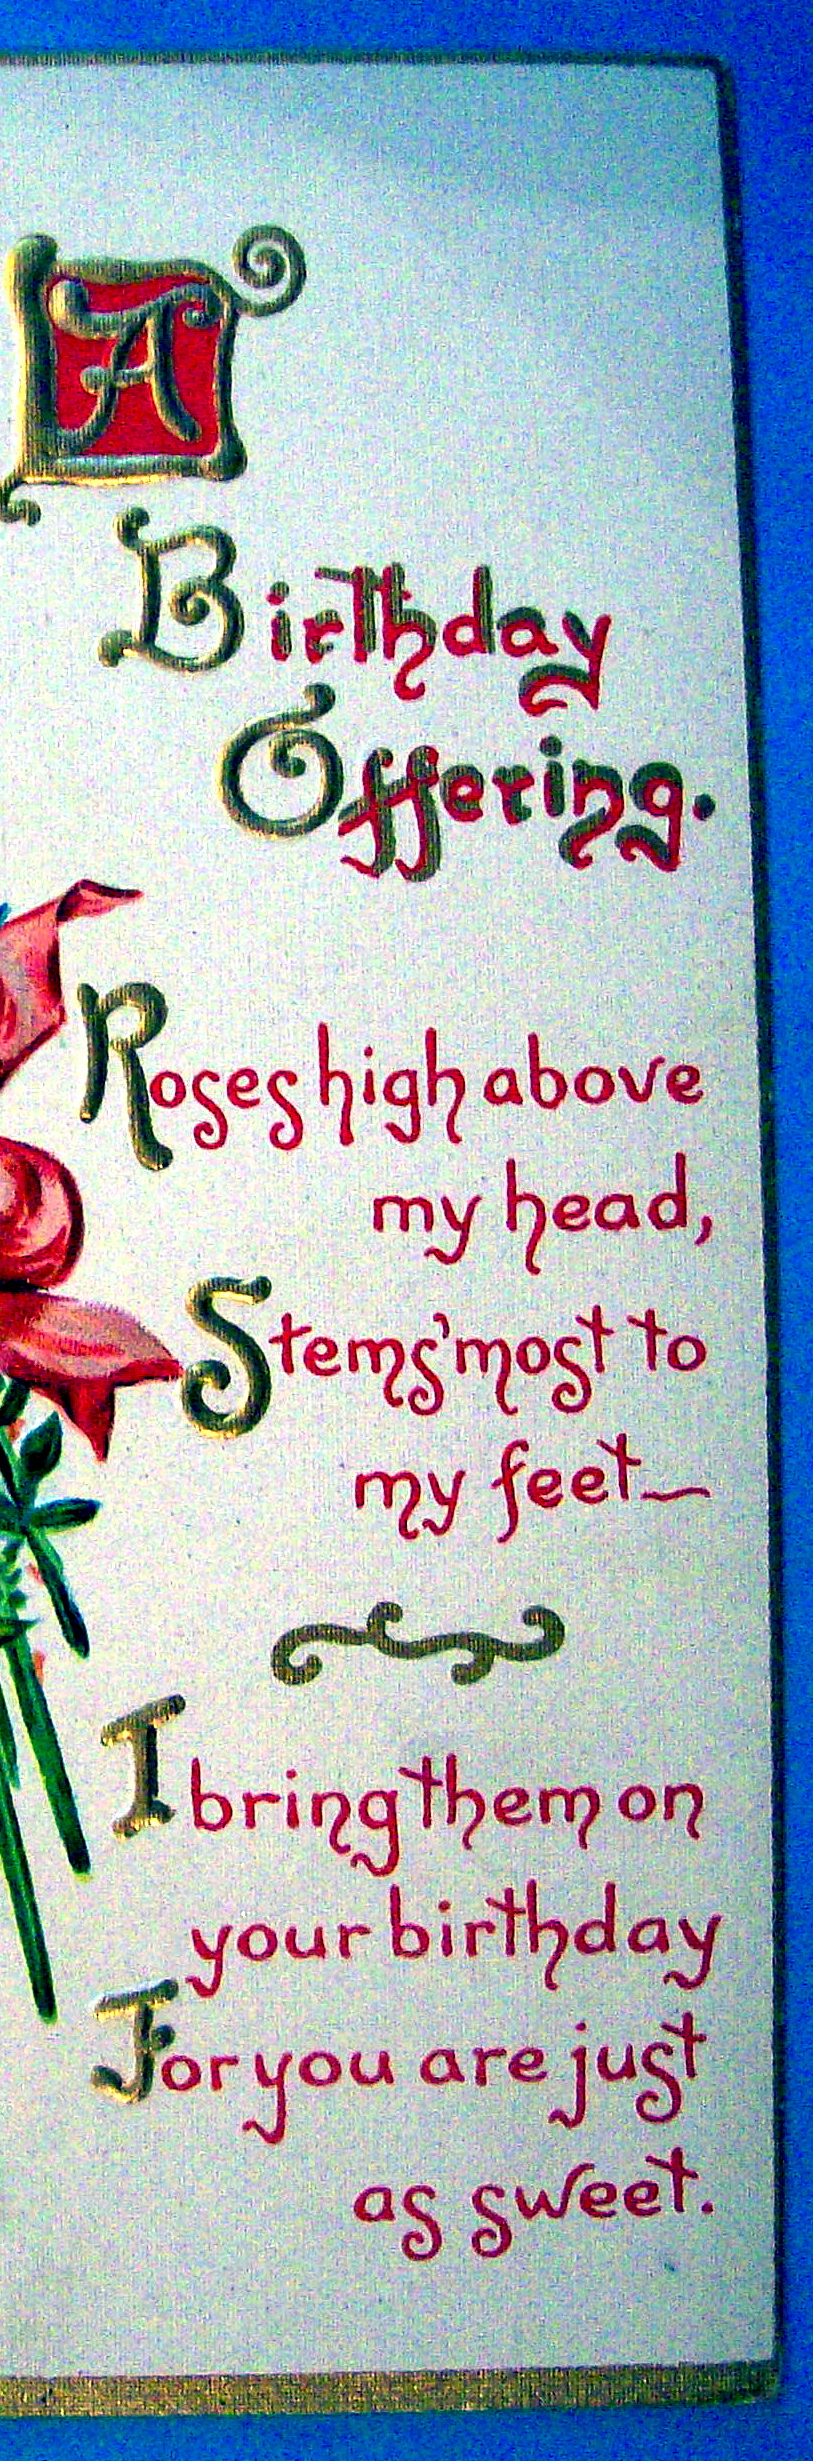 A
Birthday
Offering.
Roses high above
my head,
Stems 'most to
my feet—
I bring them on
your birthday
For you are just
as sweet.